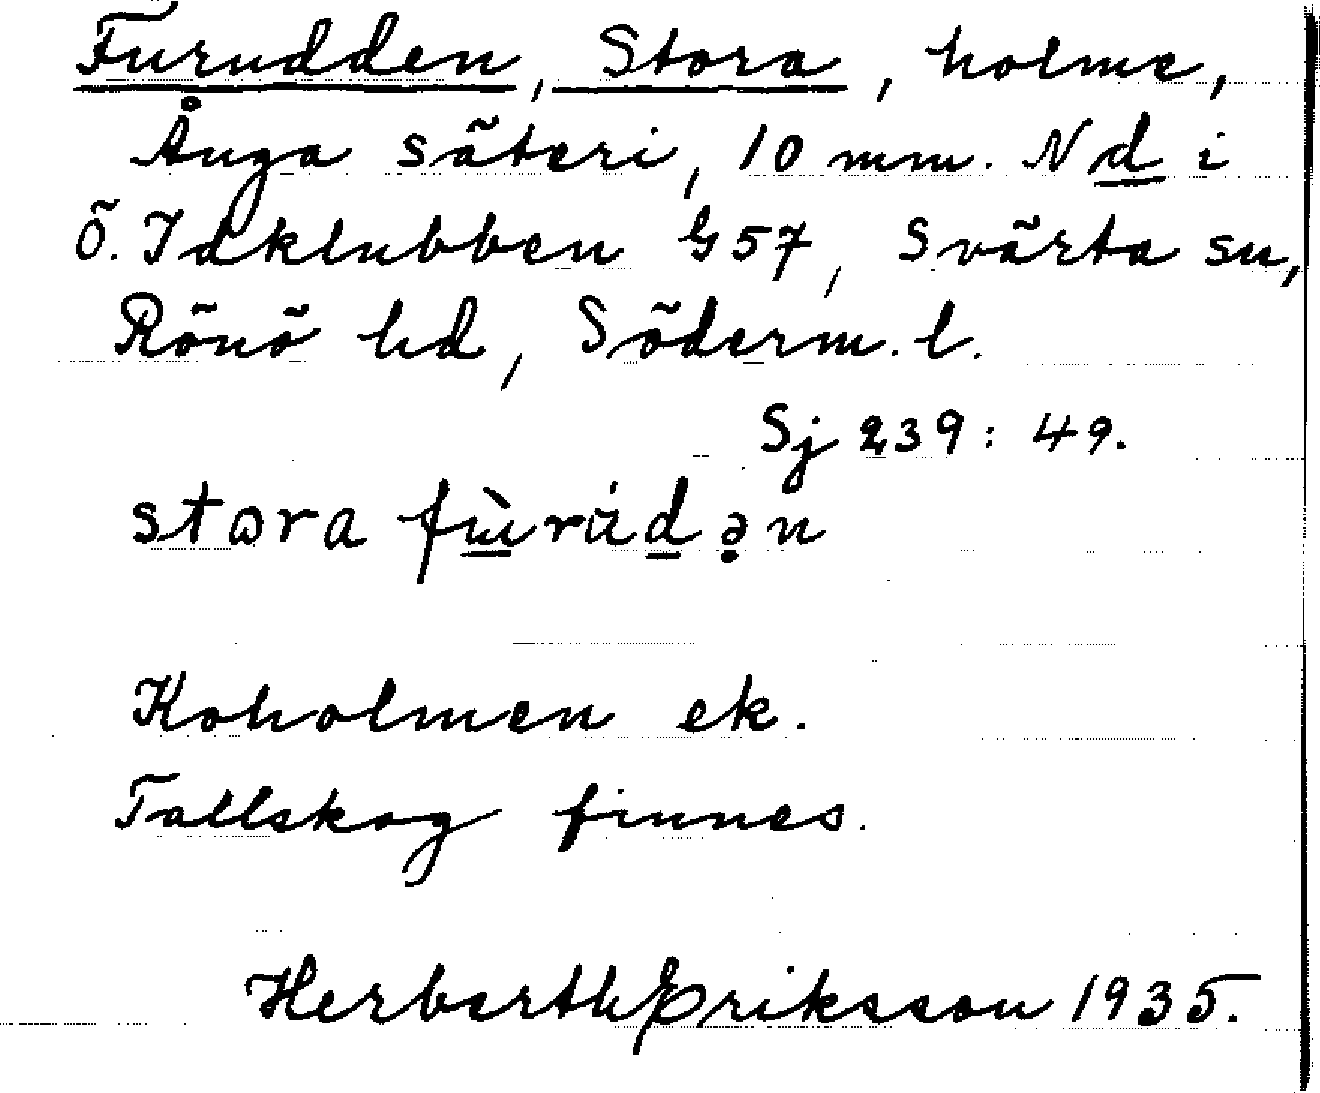 Furudden, Stora, holme,
Ånga säteri, 10 mm. N d i
Ö. Idklubben G57, Svärta sn,
Rönö hd, Söderm. l.
Sj 239: 49.
stora
Koholmen ek.
Tallskog finnes.
Herberth Eriksson 1935.